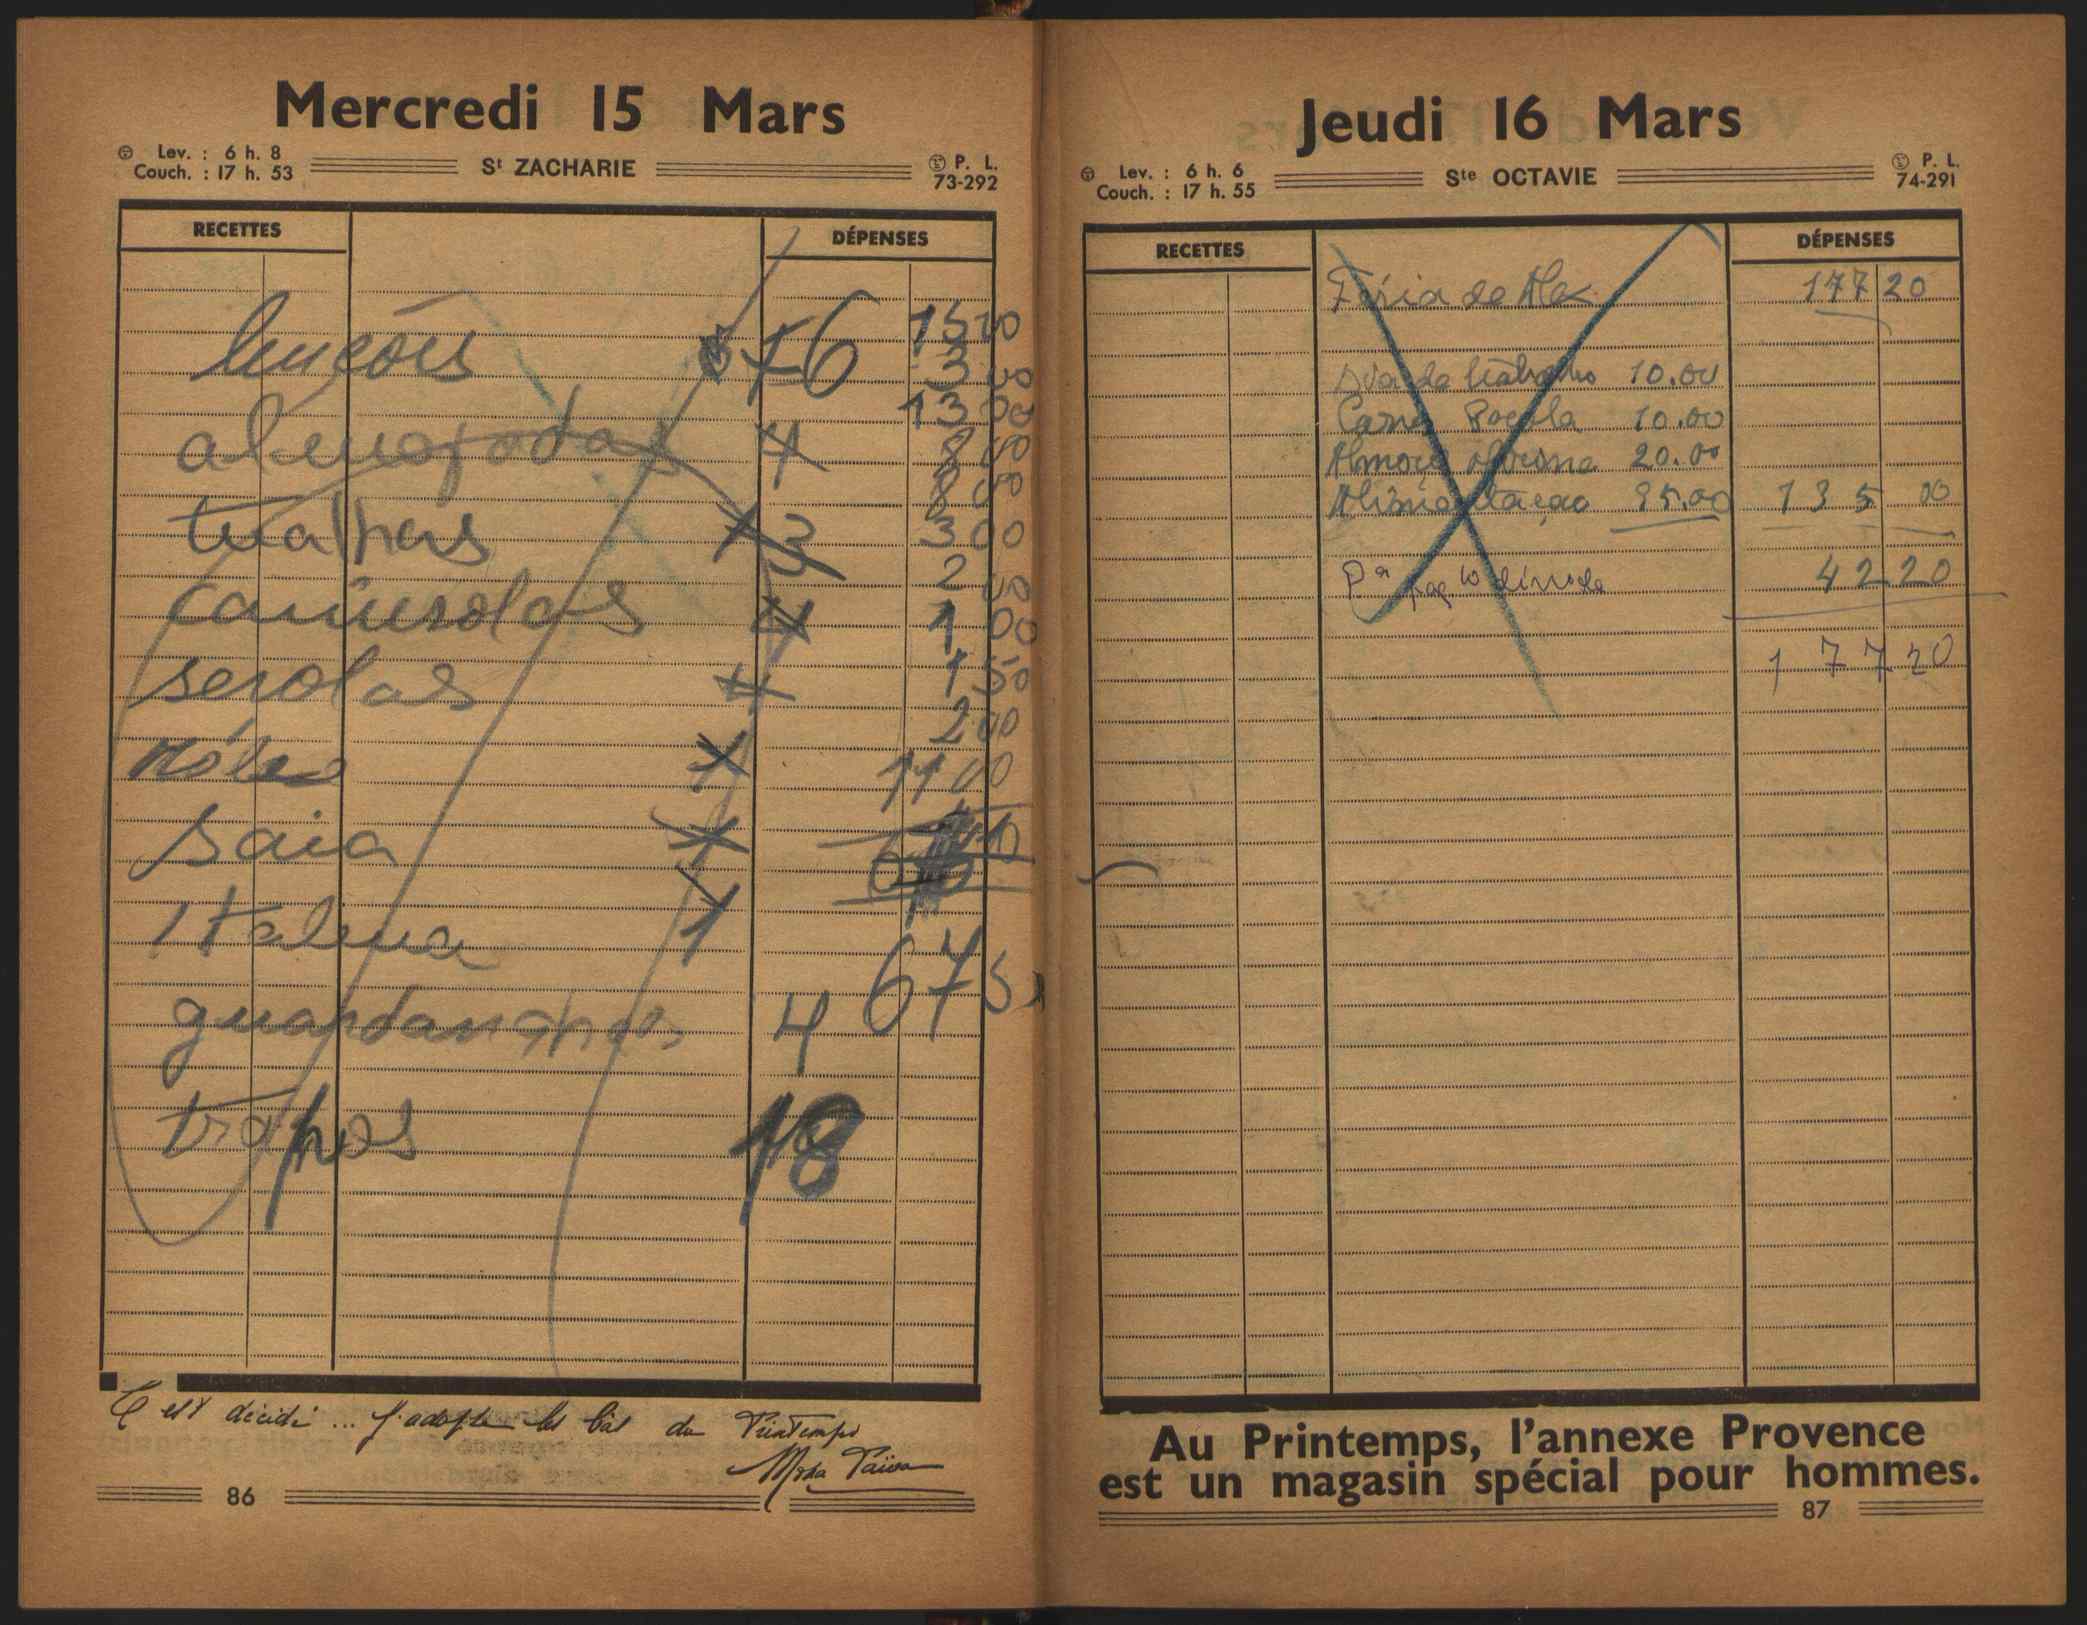 Mercredi 15 Mars
Lev. : 6 h. 8
Couch. : 17 h. 53
St ZACHARIE
P. L.
73-292
RECETTES
DÉPENSES
lençóis 6 15 00
3 00
13 00
almofadas 4 8 00
8 00
toalhas 3 3 00
2 00
camisolas 4 1 00
serolas 4 1 50
2 00
11 00
saia 1
1
675
4
trapos 18
C'est décidé... J'adopte les bas du Printemps
86
Jeudi 16 Mars
Lev. : 6 h. 6
Couch. : 17 h. 55
Ste OCTAVIE
P. L.
74-291
RECETTES
DÉPENSES
Féria de 177 20
10.00
10.00
Almoço 20.00
Alimentação 95.00 135 00
Pa pagto 42 20
177 20
Au Printemps, l'annexe Provence
est un magasin spécial pour hommes.
87